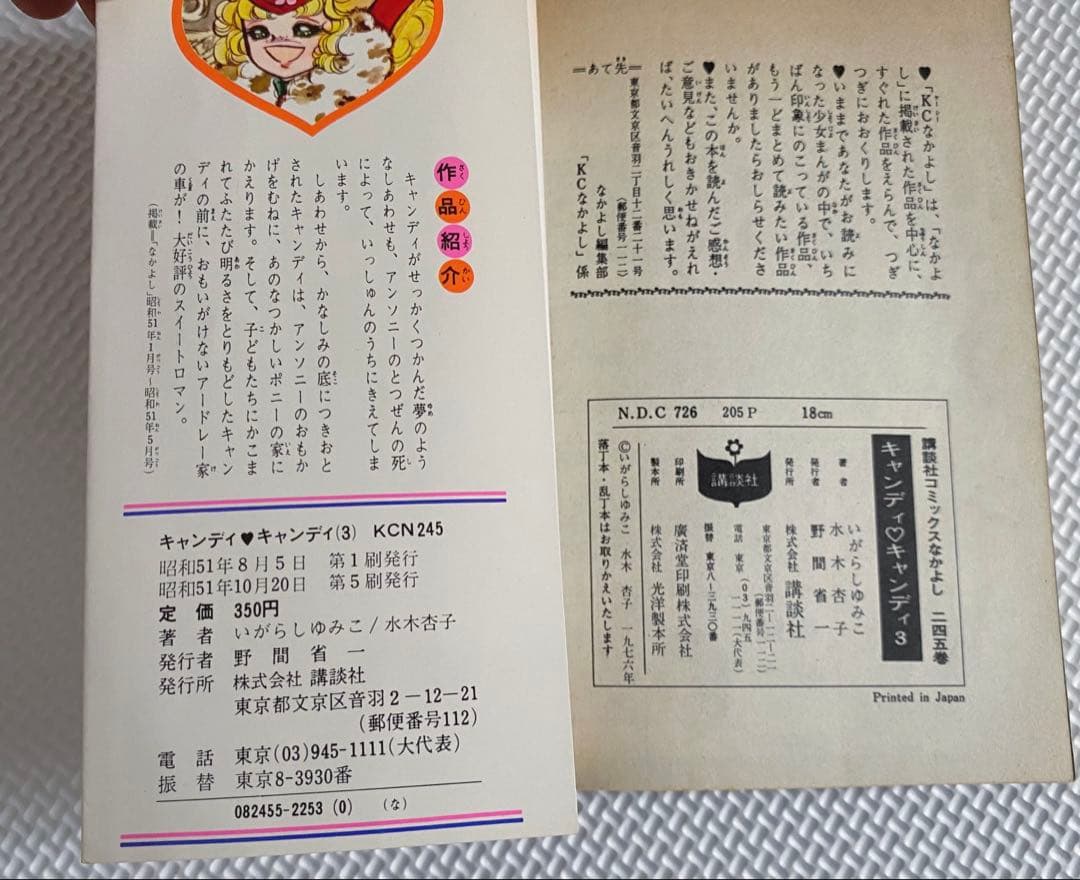 作品紹介
キャンディがせっかくつかんだ夢のよう
なしあわせも、アンソニーのとつぜんの死
によって、いっしゅんのうちにきえてしま
います。
しあわせから、かなしみの底につきおと
されたキャンディは、アンソニーのおもか
げをむねに、あのなつかしいポニーの家に
かえります。そして、子どもたちにかこま
れてふたたび明るさをとりもどしたキャン
ディの前に、おもいがけないアードレー家
の車が！大好評のスイートロマン。
(掲載＝「なかよし」昭和51年1月号～昭和51年5月号)
キャンディ♥キャンディ(3) KCN245
昭和51年8月5日 第1刷発行
昭和51年10月20日 第5刷発行
定価 350円
著者 いがらしゆみこ/水木杏子
発行者 野間省一
発行所 株式会社 講談社
東京都文京区音羽2-12-21
(郵便番号112)
電話 東京(03)945-1111(大代表)
振替 東京8-3930番
082455-2253 (0) (な)
♥「KCなかよし」は、「なかよ
し」に掲載された作品を中心に、
すぐれた作品をえらんで、つぎ
つぎにおおくりします。
♥いままであなたがお読みに
なった少女まんがの中で、いち
ばん印象にのこっている作品、
もう一どまとめて読みたい作品
がありましたらおしらせくださ
いませんか。
♥また、この本を読んだご感想・
ご意見などもおきかせねがえれ
ば、たいへんうれしく思います。
＝あて先＝
東京都文京区音羽二丁目十二番二十一号
(郵便番号一一二)
なかよし編集部
「KCなかよし」係
N.D.C 726 205P 18cm
講談社コミックスなかよし 二四五巻
キャンディ♡キャンディ3
著者 いがらしゆみこ
水木杏子
発行者 野間省一
発行所 株式会社 講談社
東京都文京区音羽二-一二-二一
(郵便番号一一二)
電話 東京(03)九四五
一一一一(大代表)
振替 東京八-三九三〇番
講談社
印刷所 廣済堂印刷株式会社
製本所 株式会社 光洋製本所
©いがらしゆみこ 水木杏子 一九七六年
落丁本・乱丁本はお取りかえいたします
Printed in Japan